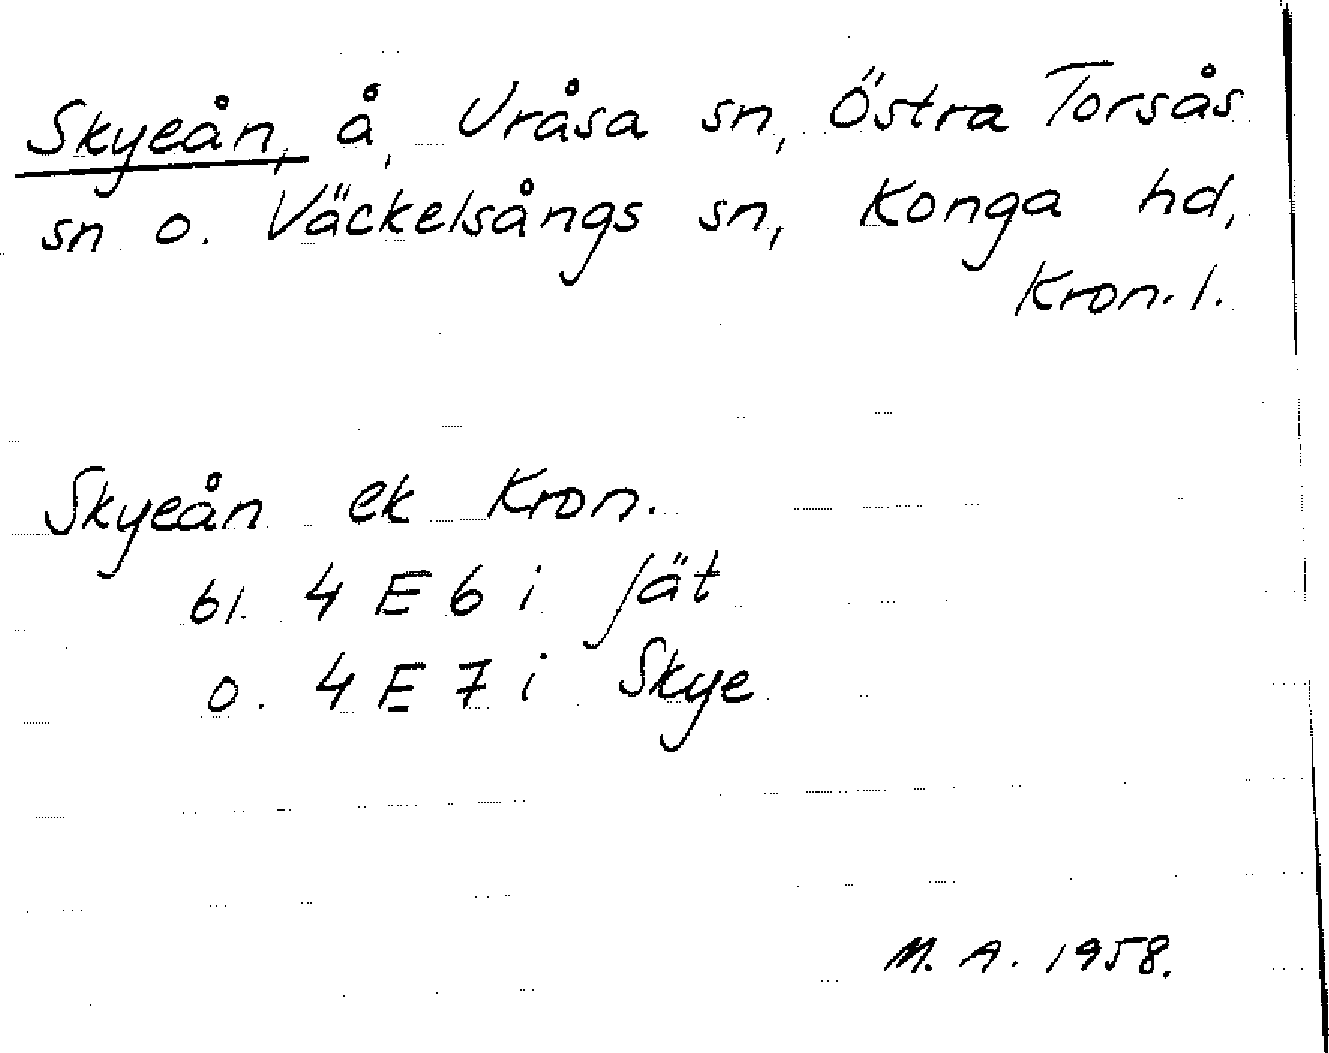 Skyeån, å, Uråsa sn, Östra Torsås
sn o. Väckelsångs sn, Konga hd,
Kron. l.
Skyeån ek Kron.
bl. 4 E 6 i Jät
o. 4 E 7 i Skye
M. A. 1958.